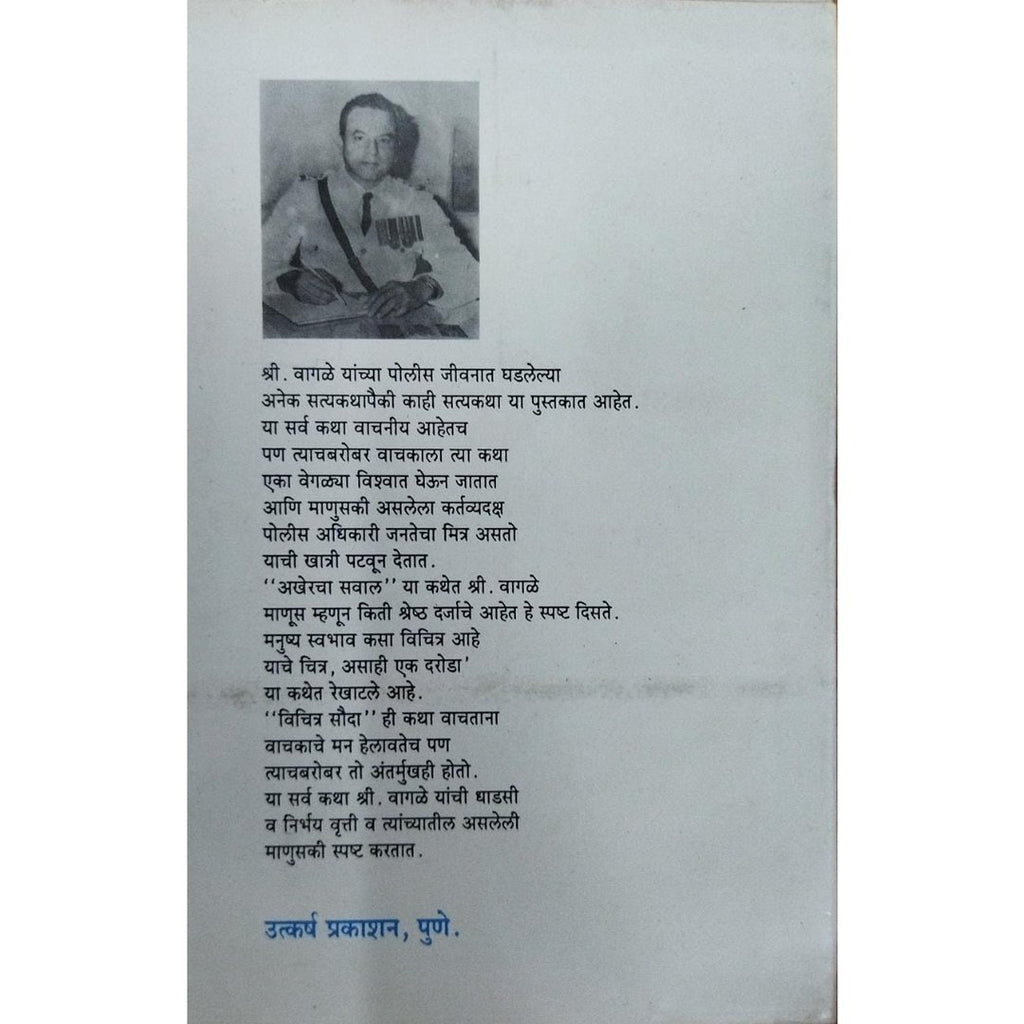 श्री. वागळे यांच्या पोलीस जीवनात घडलेल्या
अनेक सत्यकथापैकी काही सत्यकथा या पुस्तकात आहेत.
या सर्व कथा वाचनीय आहेतच
पण त्याचबरोबर वाचकाला त्या कथा
एका वेगळ्या विश्वात घेऊन जातात
आणि माणुसकी असलेला कर्तव्यदक्ष
पोलीस अधिकारी जनतेचा मित्र असतो
याची खात्री पटवून देतात.
‘‘अखेरचा सवाल’’ या कथेत श्री. वागळे
माणूस म्हणून किती श्रेष्ठ दर्जाचे आहेत हे स्पष्ट दिसते.
मनुष्य स्वभाव कसा विचित्र आहे
याचे चित्र, असाही एक दरोडा’
या कथेत रेखाटले आहे.
‘‘विचित्र सौदा’’ ही कथा वाचताना
वाचकाचे मन हेलावतेच पण
त्याचबरोबर तो अंतर्मुखही होतो.
या सर्व कथा श्री. वागळे यांची धाडसी
व निर्भय वृत्ती व त्यांच्यातील असलेली
माणुसकी स्पष्ट करतात.
उत्कर्ष प्रकाशन, पुणे.